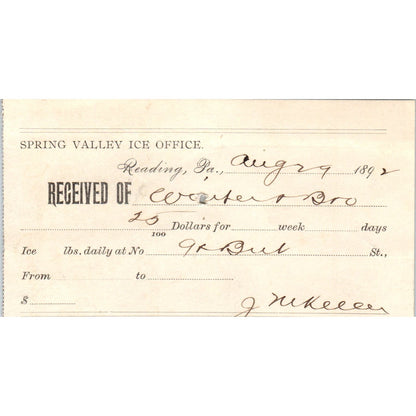 SPRING VALLEY ICE OFFICE.
Reading, Pa., Aug 29 1892
RECEIVED OF Winter & Bro
25/100 Dollars for week days
Ice lbs. daily at No St.,
From to
$ J McKeller